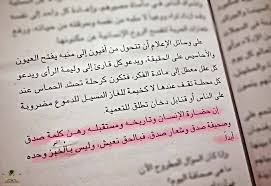 على وسائل الإعلام أن تتحول من أفيون إلى منبه يفتح العيون
والأحاسيس على الحقيقة. ويدعو كل قارئ إلى وليمة الرأي ويدعو
كل عقل معطل إلى مائدة الفكر، فتكون كرحلة تحتد الحماس عند
كل محطة تقف عندها لا كخيمة للغاز المسيل للدموع مضروبة
على الناس أو قنابل دخان تطلق للتعمية
إن حضارة الإنسان وتاريخه ومستقبله رهن كلمة صدق
وصحيفة صدق وشعار صدق. فبالحق نعيش، وليس بالخبز وحده
أبداً